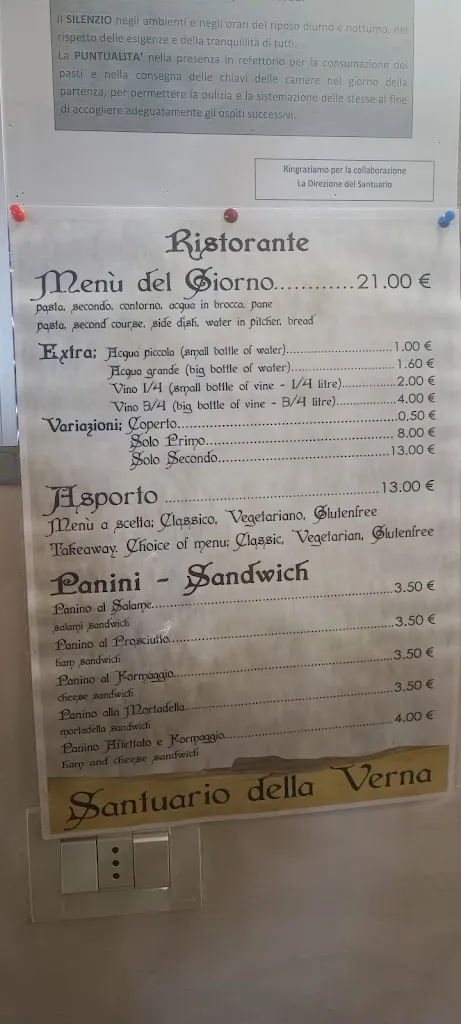 Il SILENZIO negli ambienti e negli orari del riposo diurno e notturno, nel
rispetto delle esigenze e della tranquillità di tutti.
La PUNTUALITA' nella presenza in refettorio per la consumazione dei
pasti e nella consegna delle chiavi delle camere nel giorno della
partenza, per permettere la pulizia e la sistemazione delle stesse al fine
di accogliere adeguatamente gli ospiti successivi.
Ringraziamo per la collaborazione
La Direzione del Santuario
Ristorante
Menù del Giorno............21.00 €
pasta, secondo, contorno, acqua in brocca, pane
pasta, second course, side dish, water in pitcher, bread
Extra: Acqua piccola (small bottle of water)..........................1.00 €
Acqua grande (big bottle of water)..........................1.60 €
Vino 1/4 (small bottle of vine - 1/4 litre)..............2.00 €
Vino 3/4 (big bottle of vine - 3/4 litre)..................4.00 €
Variazioni: Coperto..........................................0,50 €
Solo Primo..........................................8.00 €
Solo Secondo..........................................13.00 €
Asporto ..........................................13.00 €
Menù a scelta: Classico, Vegetariano, Glutenfree
Takeaway. Choice of menu: Classic, Vegetarian, Glutenfree
Panini - Sandwich
Panino al Salame..........................................3.50 €
salami sandwich
Panino al Prosciutto..........................................3.50 €
ham sandwich
Panino al Formaggio..........................................3.50 €
cheese sandwich
Panino alla Mortadella..........................................3.50 €
mortadella sandwich
Panino Affettato e Formaggio..........................................4.00 €
ham and cheese sandwich
Santuario della Verna